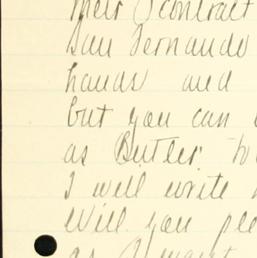 their contract
San Fernando
hands and
but you can
as Butler
I will write
Will you
as I want